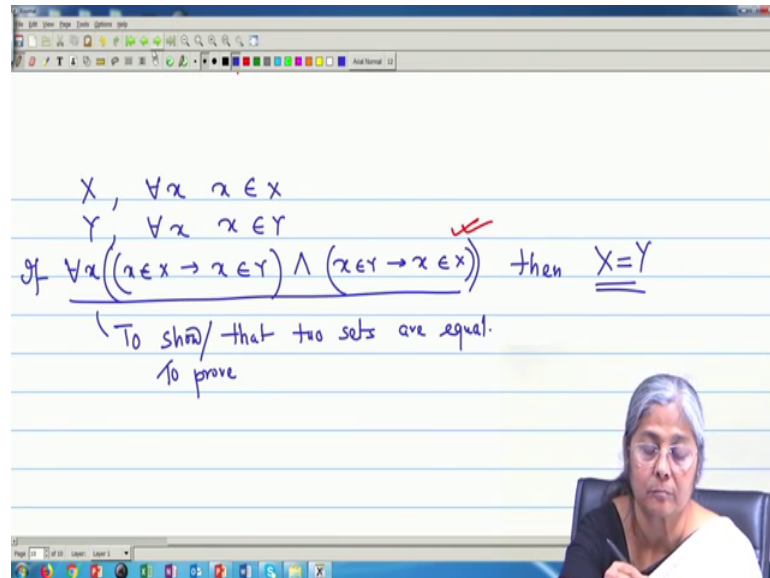 Xournal
File Edit View Page Tools Options Help
Arial Normal 12
X , ∀x x ∈ X
Y, ∀x x ∈ Y
If ∀x((x ∈ X → x ∈ Y) ∧ (x ∈ Y → x ∈ X)) then X = Y
To show/ that two sets are equal.
To prove
Page 10 of 10 Layer: Layer 1